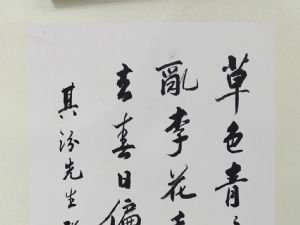 草色青
亂李花
去春日偏
其汾先生